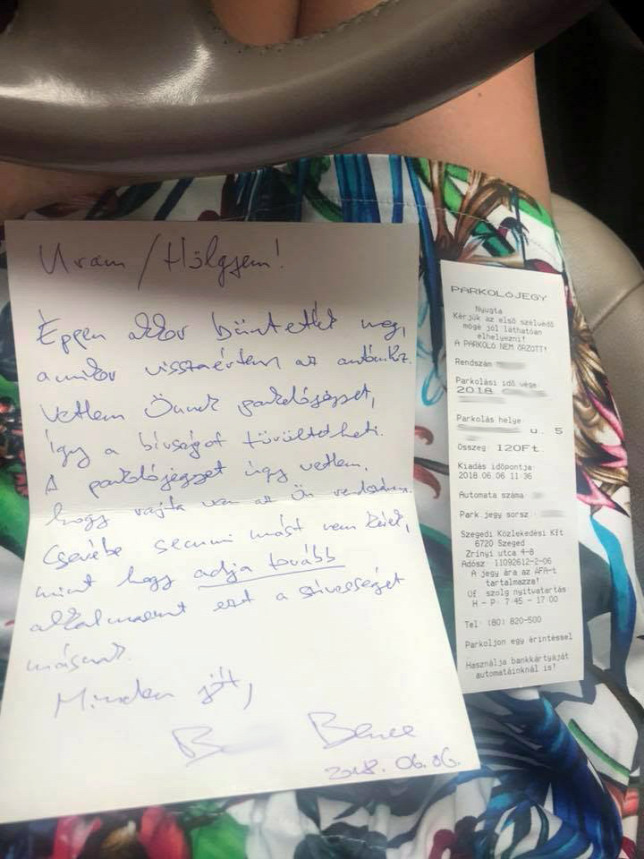 Uram / Hölgyem!
Éppen akkor büntették meg,
amikor visszaértem az autómhoz.
Vettem Önnek parkolójegyet,
így a bírságot törültetheti.
A parkolójegyet úgy vettem,
hogy rajta van az Ön rendszáma.
Cserébe semmi mást nem kérek,
mint hogy adja tovább
alkalmasint ezt a szívességet
másnak.
Minden jót,
B Bence
2018. 06. 06.
PARKOLÓJEGY
Nyugta
Kérjük az első szélvédő
mögé jól láthatóan
elhelyezni!
A PARKOLÓ NEM ŐRZÖTT!
Rendszám
Parkolási idő vége
2018
Parkolás helye
u. 5
Összeg 120Ft
Kiadás időpontja
2018.06.06 11:36
Automata száma
Park jegy sorsz
Szegedi Közlekedési Kft
6720 Szeged
Zrínyi utca 4-8
Adósz 11092612-2-06
A jegy ára az ÁFA-t
tartalmazza!
Üf szolg nyitvatartás
H - P: 7:45 - 17:00
Tel: (80) 820-500
Parkoljon egy érintéssel
Használja bankkártyáját
automatáinknál is!